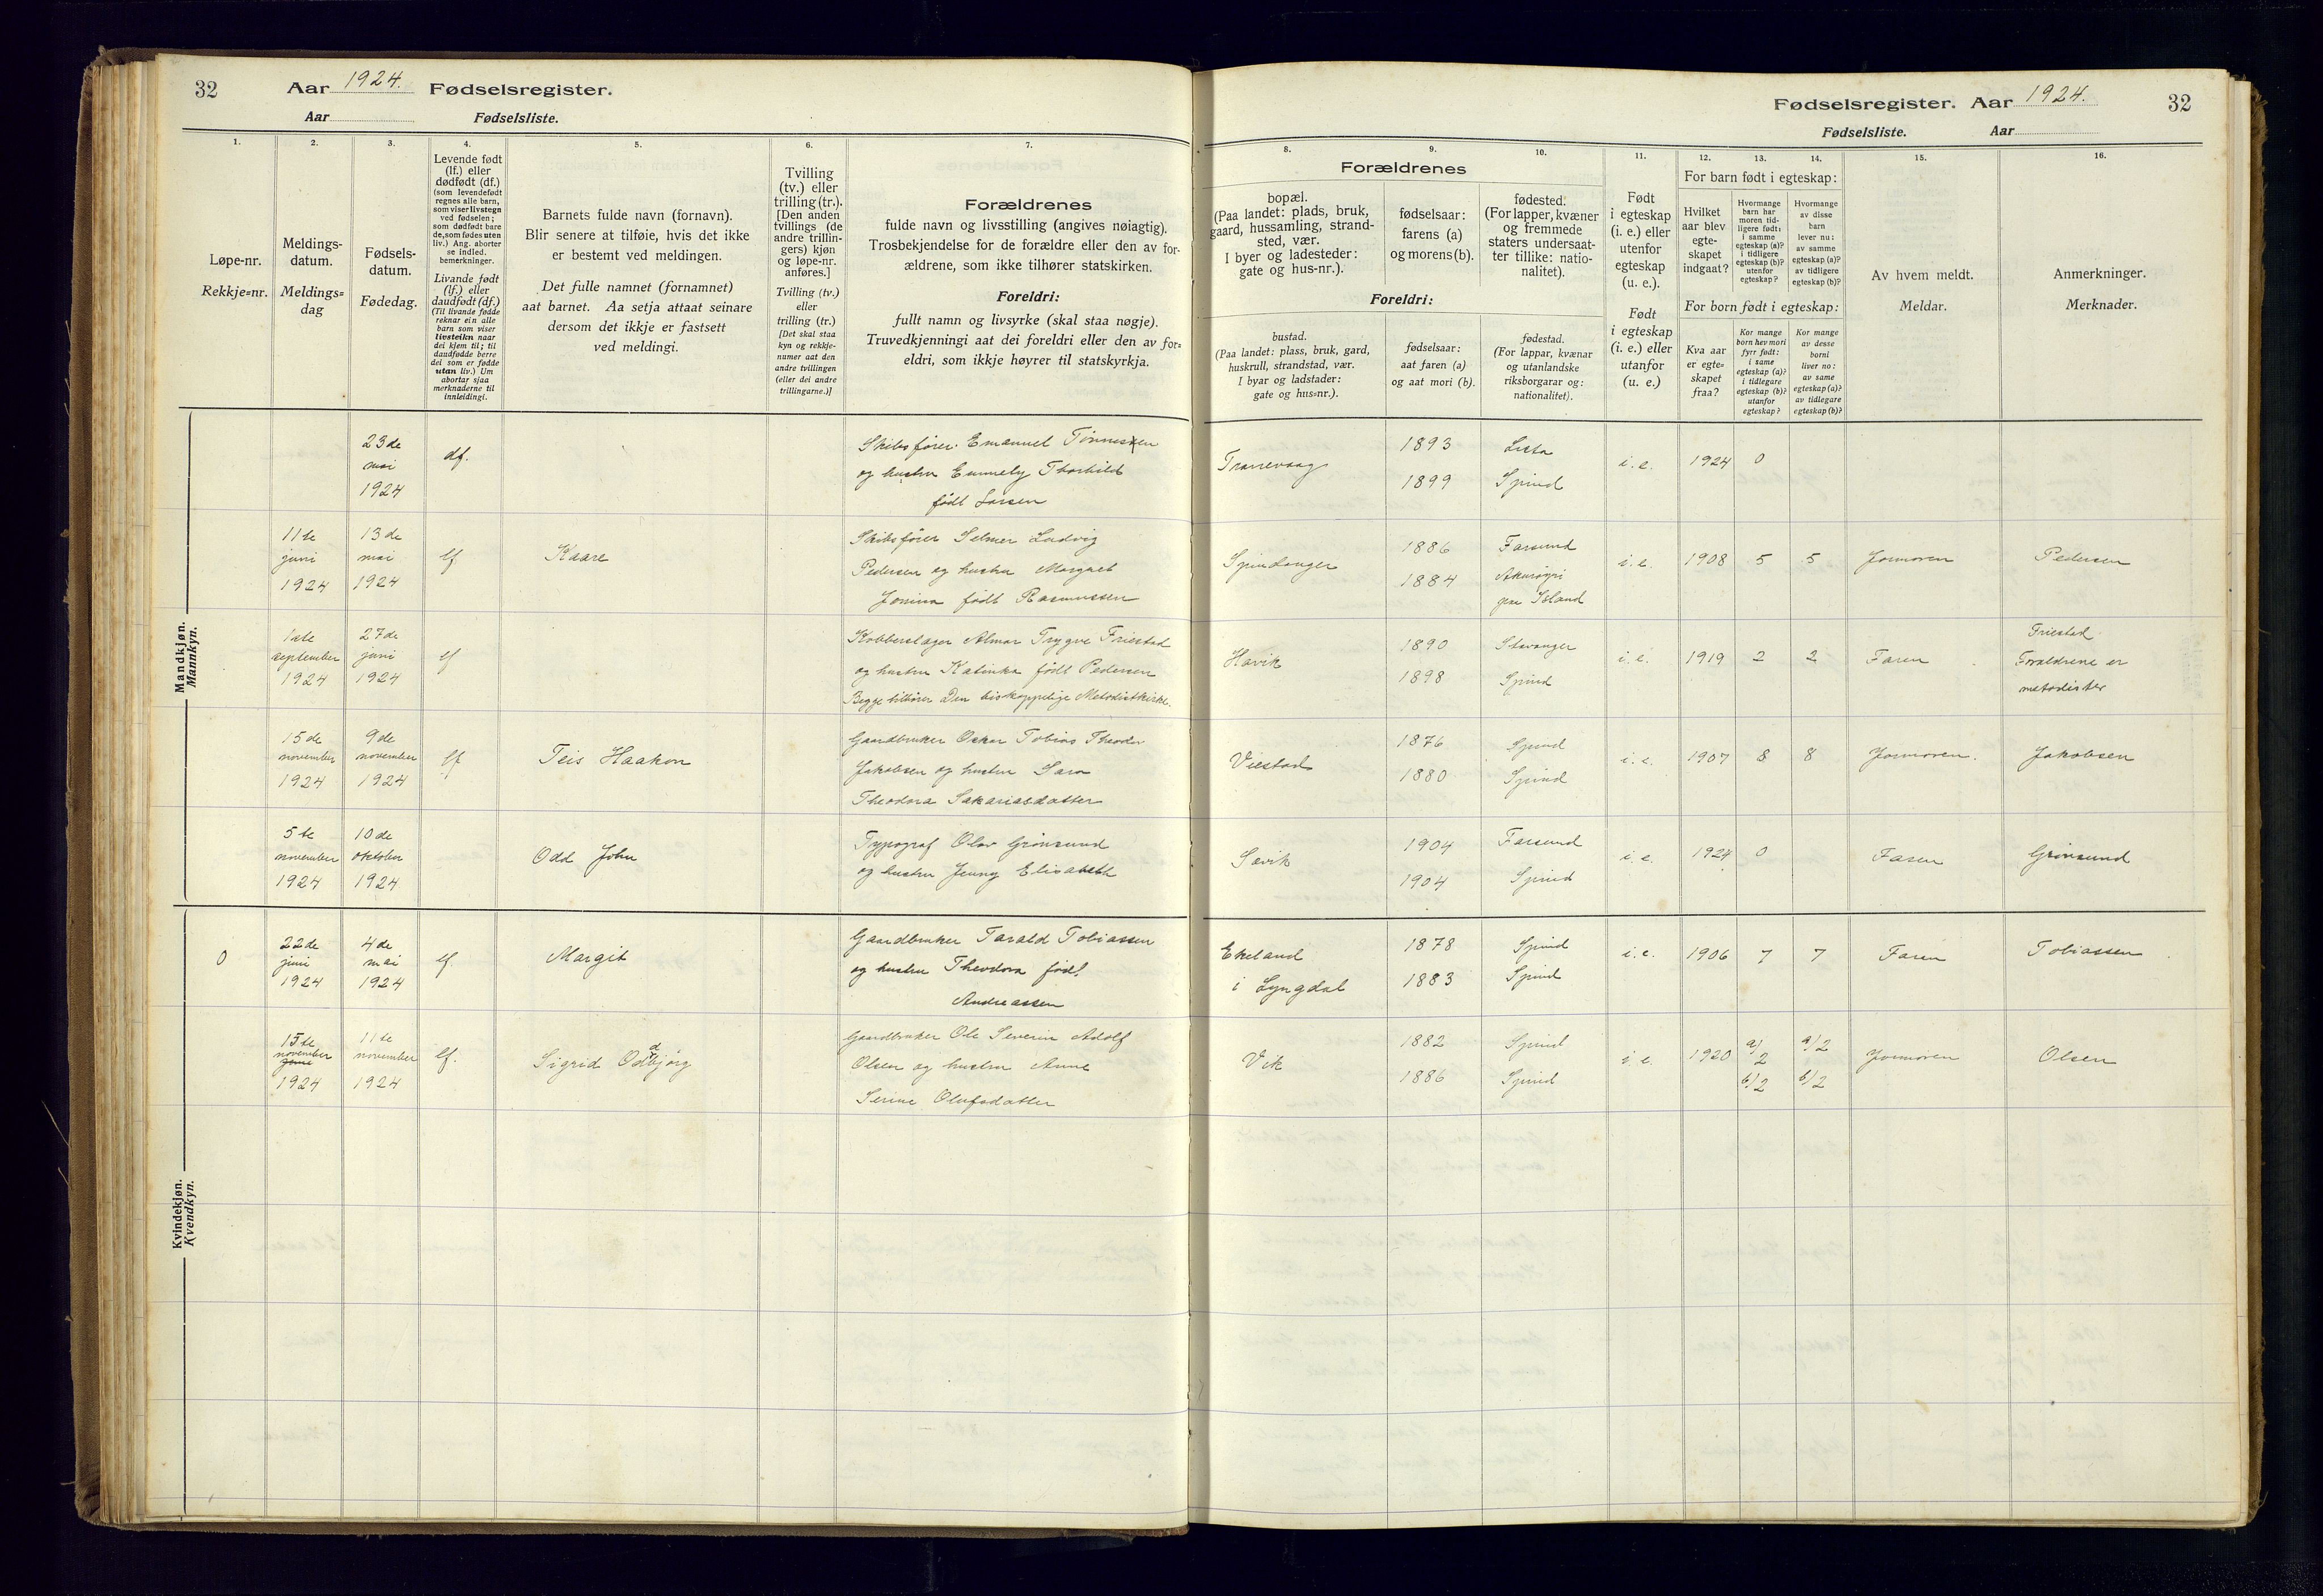 32
Aar 1924. Fødselsregister.
Aar Fødselsliste.
Fødselsregister. Aar 1924.
32
Fødselsliste. Aar
1.
Løpe-nr.
Rekkje=nr.
2.
Meldings-
datum.
Meldings=
dag
3.
Fødsels-
datum.
Fødedag.
4.
Levende født
(lf.) eller
dødfødt (df.)
(som levendefødt
regnes alle barn,
som viser livstegn
ved fødselen;
som dødfødt bare
de, som fødes uten
liv.) Ang. aborter
se indled.
bemerkninger.
Livande født
(lf.) eller
daudfødt (df.)
(Til livande fødde
reknar ein alle
barn som viser
livsteikn naar
dei kjem til; til
daudfødde berre
dei som er fødde
utan liv.) Um
abortar sjaa
merknaderne til
innleidingi.
5.
Barnets fulde navn (fornavn).
Blir senere at tilføie, hvis det ikke
er bestemt ved meldingen.
Det fulle namnet (fornamnet)
aat barnet. Aa setja attaat seinare
dersom det ikkje er fastsett
ved meldingi.
6.
Tvilling
(tv.) eller
trilling (tr.).
[Den anden
tvillings (de
andre trillin-
gers) kjøn
og løpe-nr.
anføres.]
Tvilling (tv.)
eller
trilling (tr.)
[Det skal staa
kyn og rekkje-
numer aat den
andre tvillingen
(eller dei andre
trillingarne.)]
7.
Forældrenes
fulde navn og livsstilling (angives nøiagtig).
Trosbekjendelse for de forældre eller den av for-
ældrene, som ikke tilhører statskirken.
Foreldri:
fullt namn og livsyrke (skal staa nøgje).
Truvedkjenningi aat dei foreldri eller den av for=
eldri, som ikkje høyrer til statskyrkja.
8.
Forældrenes
bopæl.
(Paa landet: plads, bruk,
gaard, hussamling, strand-
sted, vær.
I byer og ladesteder:
gate og hus-nr.).
Foreldri:
bustad.
(Paa landet: plass, bruk, gard,
huskrull, strandstad, vær.
I byar og ladstader:
gate og hus=nr.).
9.
fødselsaar:
farens (a)
og morens (b).
fødselsaar:
aat faren (a)
og aat mori (b).
10.
fødested.
(For lapper, kvæner
og fremmede
staters undersaat-
ter tillike: natio-
nalitet).
fødestad.
(For lappar, kvænar
og utanlandske
riksborgarar og:
nationalitet).
11.
Født
i egteskap
(i. e.) eller
utenfor
egteskap
(u. e.).
Født
i egteskap
(i. e.) eller
utanfor
(u. e.)
12.
For barn født i egteskap:
Hvilket
aar blev
egte-
skapet
indgaat?
For born født i egteskap:
Kva aar
er egte=
skapet
fraa?
13.
Hvormange
barn har
moren tid-
ligere født:
i samme
egteskap (a)?
i tidligere
egteskap (b)?
utenfor
egteskap?
Kor mange
born hev mori
fyrr født:
i same
egteskap (a)?
i tidlegare
egteskap (b)?
utanfor
egteskap?
14.
Hvormange
av disse
barn
lever nu:
av samme
egteskap (a)?
av tidligere
egteskap (b)?
Kor mange
av desse
borni
liver no:
av same
egteskap (a)?
av tidlegare
egteskap (b)?
15.
Av hvem meldt.
Meldar.
16.
Anmerkninger.
Merknader.
Mandkjøn.
Mannkyn.
23de mai 1924 df. Skibsfører Emanuel Tønnessen
og hustru Emmely Thorhild
født Larsen
Tranevaag 1893 1899 Lista Spind i. e. 1924 0
11te juni 1924 13de mai 1924 lf Kaare Skibsfører Selmer Ludvig
Pedersen og hustru Margret
Jonina født Rasmussen
Spindanger 1886 1884 Farsund Akurøyri Island i. e. 1908 5 5 Jormoren Pedersen
1ste september 1924 27de juni 1924 lf Kobberslager Almar Trygve Friestad
og hustru Katinka født Pedersen
Begge tilhører Den biskoppelige Metodistkirke.
Havik 1890 1898 Stavanger Spind i. e. 1919 2 2 Faren Friestad
Forældrene er
metodister
15de november 1924 9de november 1924 lf Teis Haakon Gaardbruker Oskar Tobias Theodor
Jakobsen og hustru Sara
Theodora Sakariasdatter
Viestad 1876 1880 Spind Spind i. e. 1907 8 8 Jormoren. Jakobsen
5te november 1924 10de oktober 1924 Odd John Typograf Olav Grønsund
og hustru Jenny Elisabeth
Sævik 1904 1904 Farsund Spind i. e. 1924 0 Faren Grønsund
Kvindekjøn.
Kvendkyn.
0 22de juni 1924 4de mai 1924 lf. Margit Gaardbruker Tarald Tobiassen
og hustru Theodora født
Andreassen
Ekeland
i Lyngdal 1878 1883 Spind Spind i. e. 1906 7 7 Faren Tobiassen
15te november 1924 11te november 1924 lf. Sigrid Oddbjørg Gaardbruker Ole Severin Adolf
Olsen og hustru Anne
Serine Olufsdatter
Vik 1882 1886 Spind Spind i. e. 1920 a/2 b/2 a/2 b/2 Jormoren Olsen